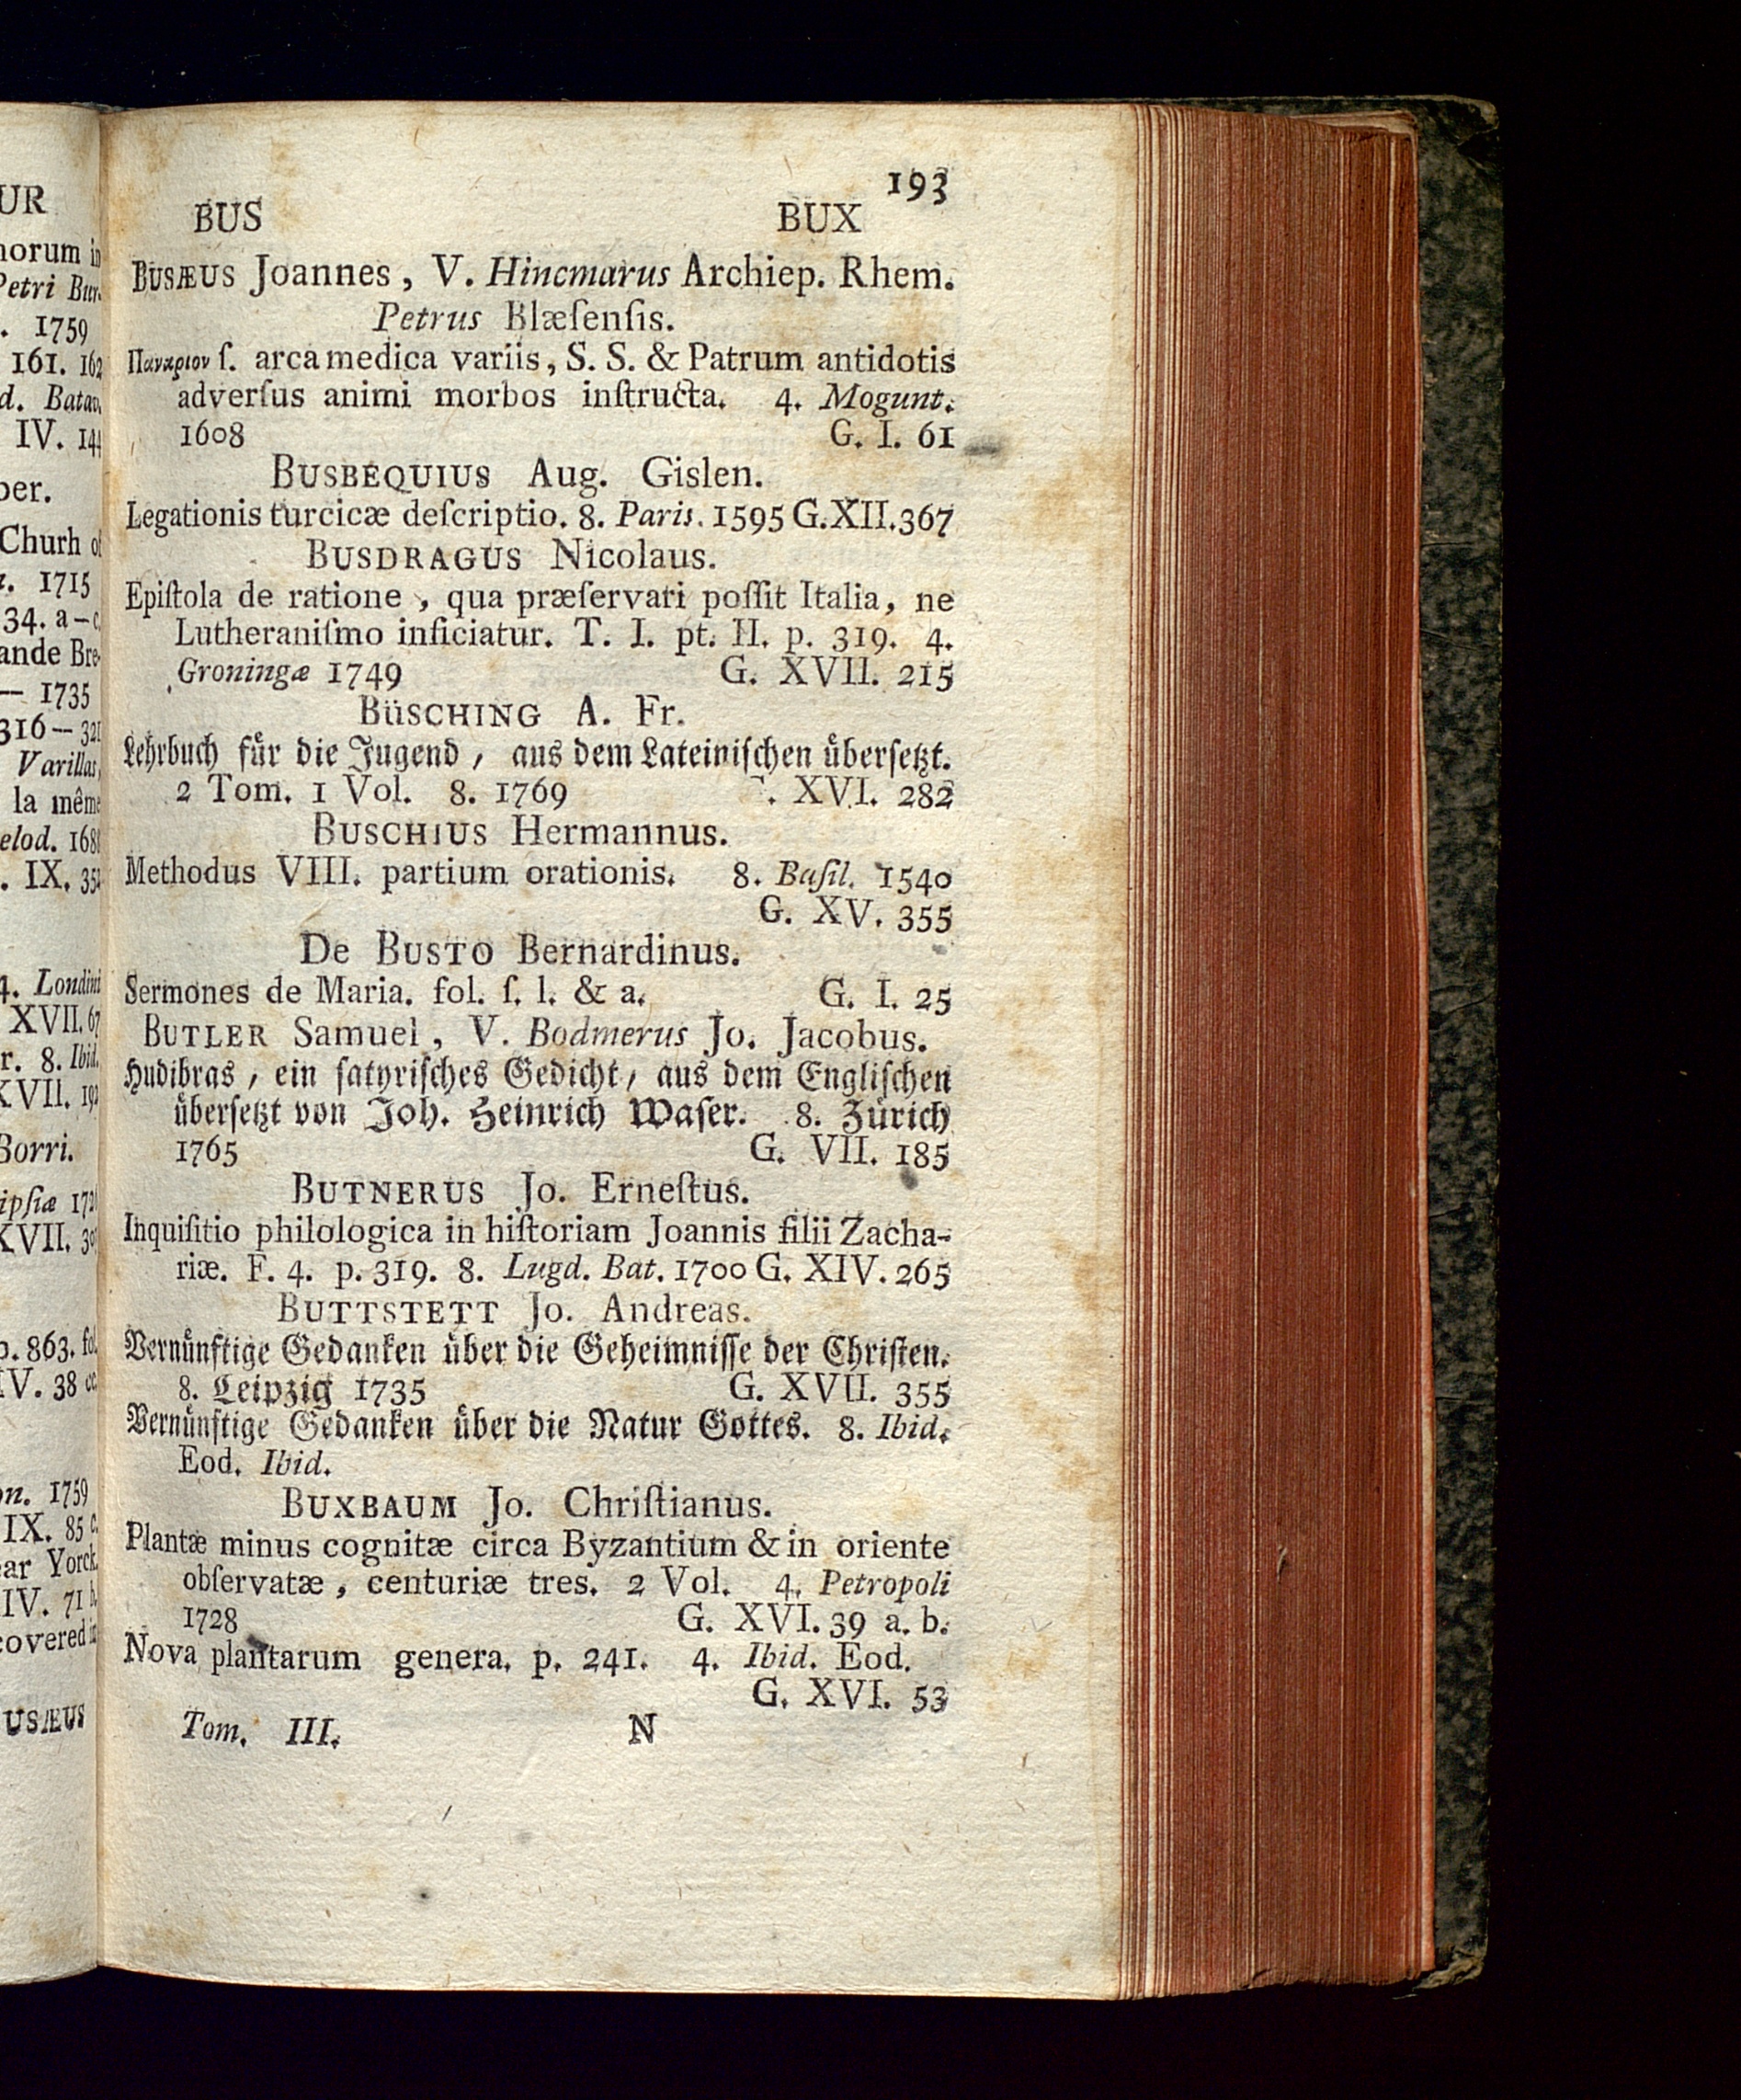 193
BUS BUX
BUSÆUS Joannes, V. Hincmarus Archiep. Rhem.
Petrus Blæſenſis.
Παναριον ſ. arca medica variis, S. S. & Patrum antidotis
adverſus animi morbos inſtructa. 4. Mogunt.
1608 G. I. 61
BUSBEQUIUS Aug. Gislen.
Legationis turcicæ deſcriptio. 8. Paris. 1595 G. XII. 367
BUSDRAGUS Nicolaus.
Epiſtola de ratione, qua præſervari poſſit Italia, ne
Lutheraniſmo inficiatur. T. I. pt. II. p. 319. 4.
Groningæ 1749 G. XVII. 215
BüSCHING A. Fr.
Lehrbuch für die Jugend, aus dem Lateiniſchen überſetzt.
2 Tom. 1 Vol. 8. 1769 . XVI. 282
BUSCHIUS Hermannus.
Methodus VIII. partium orationis. 8. Baſil. 1540
G. XV. 355
De BUSTO Bernardinus.
Sermones de Maria. fol. ſ. l. & a. G. I. 25
BUTLER Samuel, V. Bodmerus Jo. Jacobus.
Hudibras, ein ſatyriſches Gedicht, aus dem Engliſchen
überſetzt von Joh. Heinrich Waſer. 8. Zürich
1765 G. VII. 185
BUTNERUS Jo. Erneſtus.
Inquiſitio philologica in hiſtoriam Joannis filii Zacha-
riæ. F. 4. p. 319. 8. Lugd. Bat. 1700 G. XIV. 265
BUTTSTETT Jo. Andreas.
Vernünftige Gedanken über die Geheimniſſe der Chriſten.
8. Leipzig 1735 G. XVII. 355
Vernünftige Gedanken über die Natur Gottes. 8. Ibid.
Eod. Ibid.
BUXBAUM Jo. Chriſtianus.
Plantæ minus cognitæ circa Byzantium & in oriente
obſervatæ, centuriæ tres. 2 Vol. 4. Petropoli
1728 G. XVI. 39 a. b.
Nova plantarum genera. p. 241. 4. Ibid. Eod.
G. XVI. 53
Tom. III. N